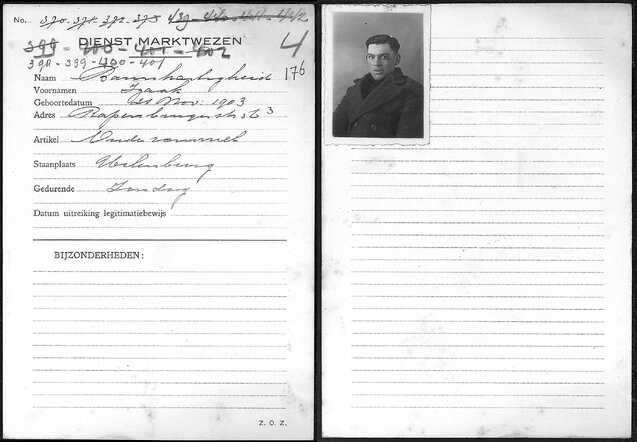 No. 370. 371. 372. 373.
399 - 400 - 401 - 402
DIENST MARKTWEZEN
4
398 - 399 - 400 - 401
176
Naam Barmhartigheid
Voornamen Izaak
Geboortedatum Nov: 1903
Adres Rapenburgerstr
Artikel Oude
Staanplaats Uilenburg
Gedurende Zondag
Datum uitreiking legitimatiebewijs
BIJZONDERHEDEN:
Z. O. Z.